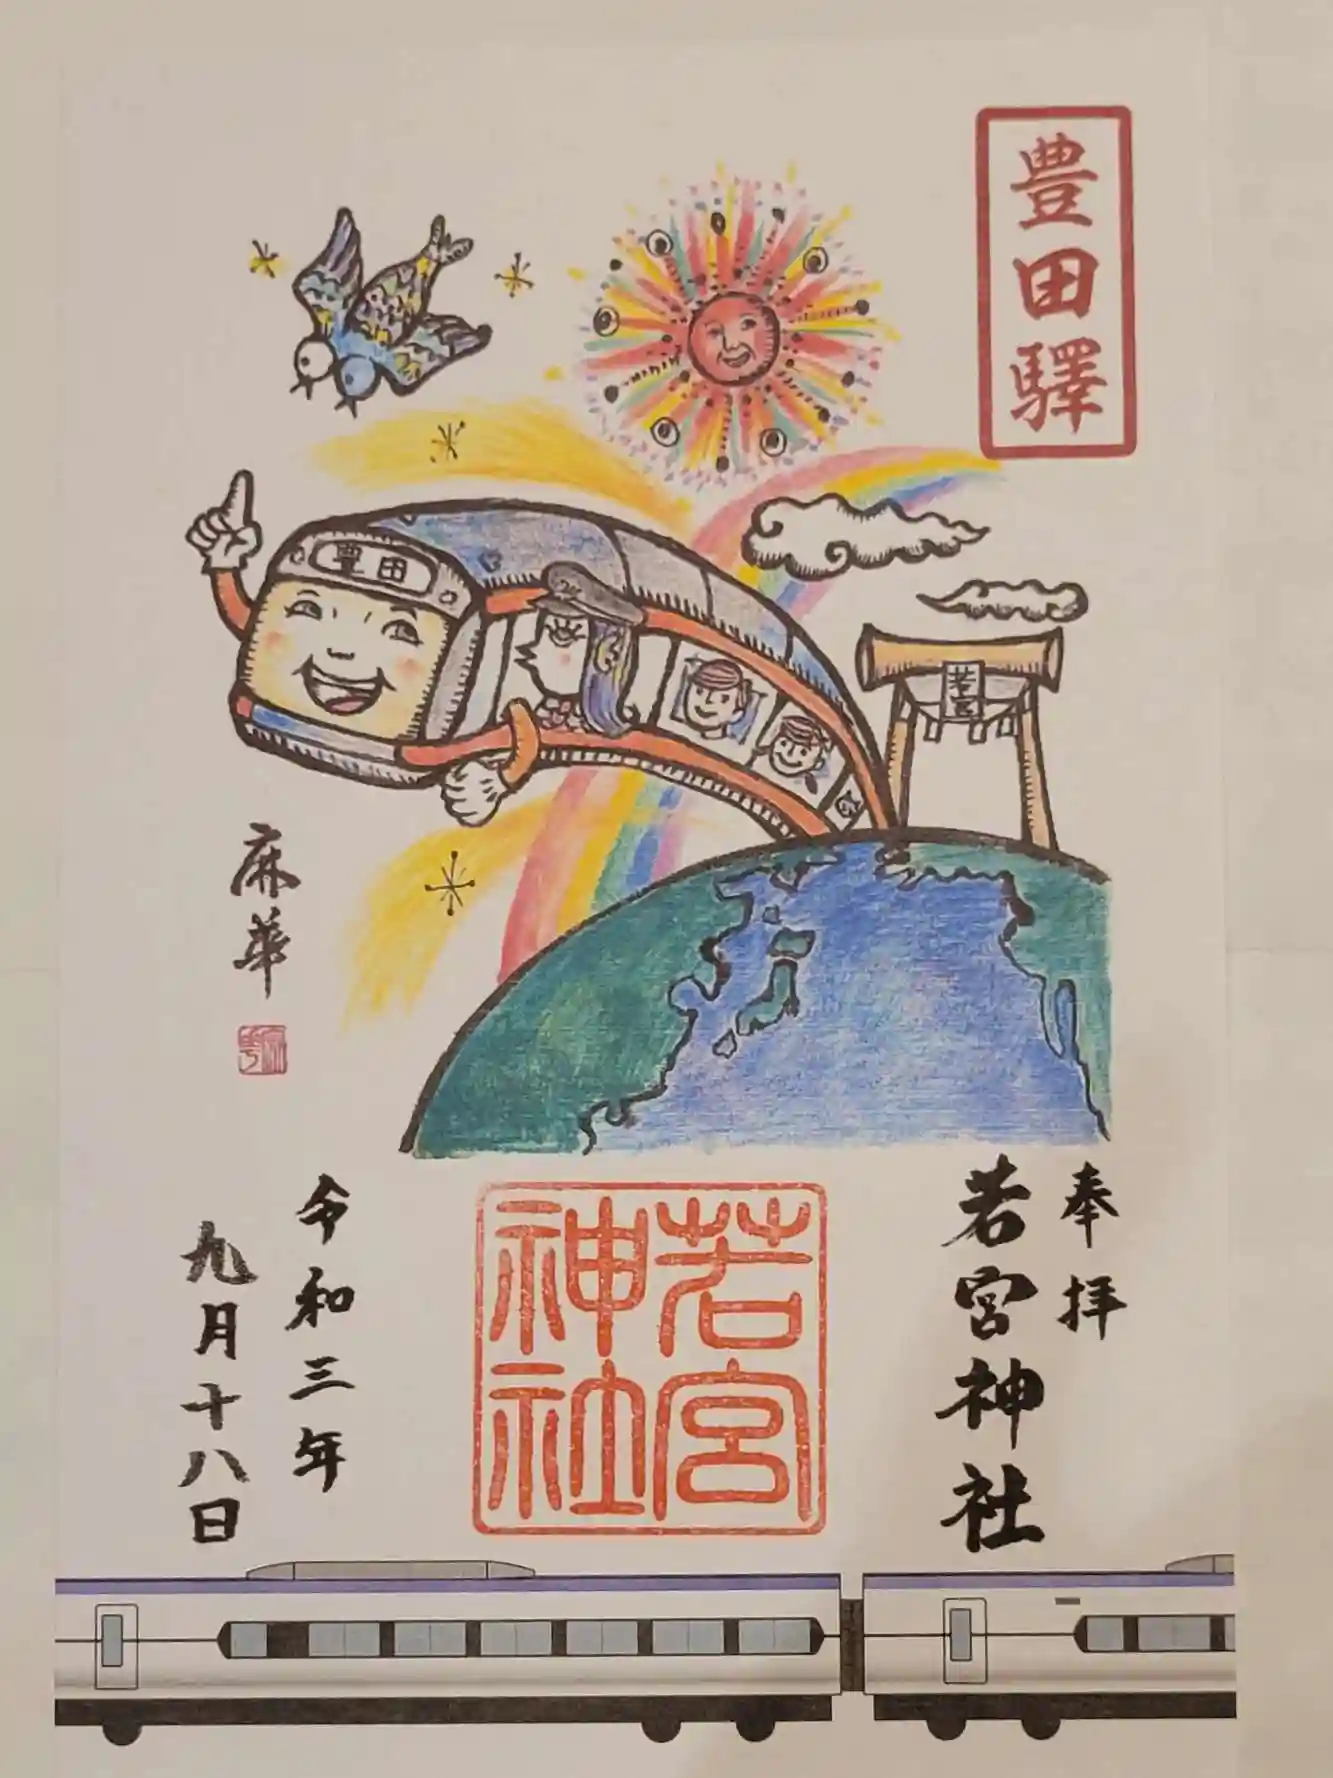 豊田驛
豊田
若宮
麻華
奉拝
若宮神社
若宮神社
令和三年
九月十八日